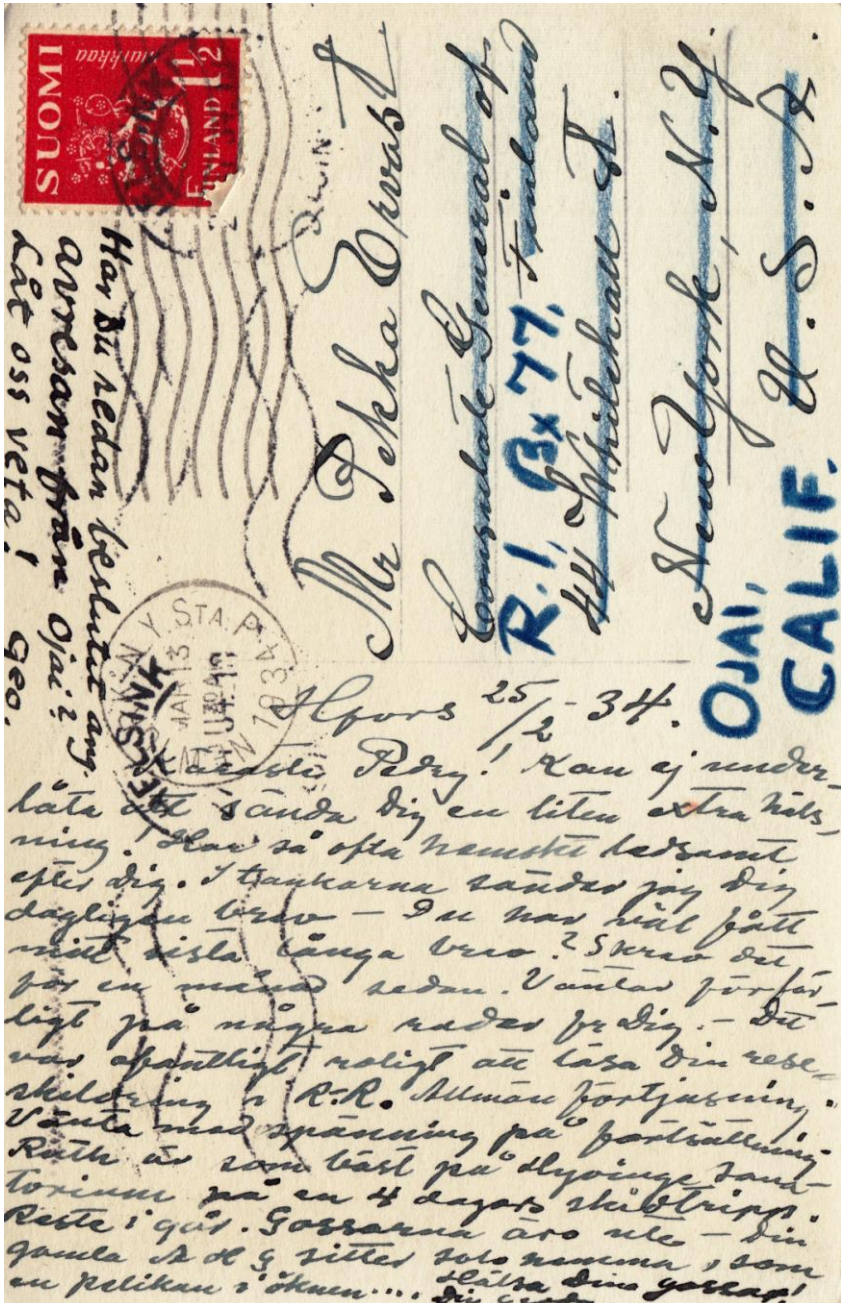 SUOMI
Markkaa
1½
FINLAND
Mr Pekka Ervast
Consulate General of
Finland
44 Whitehall St.
New York, N.Y.
U.S.A.
R.1, Bx 77,
OJAI,
CALIF.
N.Y. STA. P.
MAR 13
1934
Har Du redan beslutit ang.
avresan från Ojai?
Låt oss veta! Geo.
Hfors 25/2-34.
Käraste Pedry! Kan ej under-
låta att sända Dig en liten extra häls-
ning! Har så ofta hemskt ledsamt
efter Dig. I tankarna sänder jag Dig
dagligen brev – Du har väl fått
mitt sista långa brev? Skrev det
för en månad sedan. Väntar förfär-
ligt på några rader fr Dig. – Det
var ofantligt roligt att läsa Din rese-
skildring i R-R. Allmän förtjusning.
Vänta med spänning på fortsättning.
Ruth är som bäst på Hyvinge Sana-
torium på en 4 dagars skidtripp.
Reste i går. Gossarna äro ute – Din
gamla sitter solo hemma, som
en pelikan i öknen.... Hälsa Dina gossar!